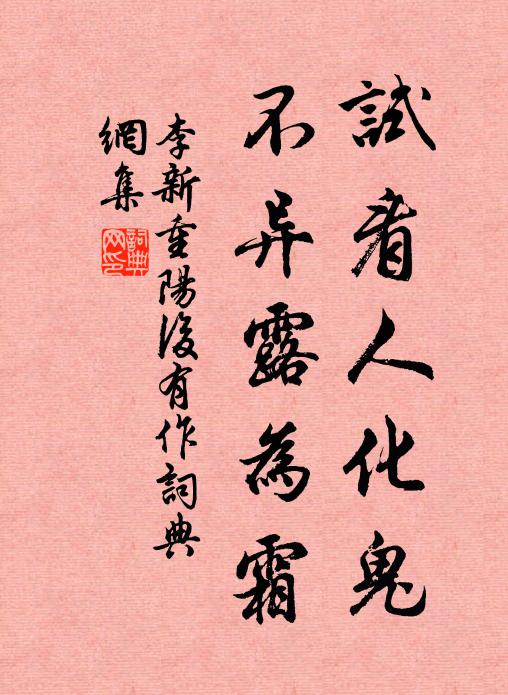 試看人化鬼
不异露為霜
李新重陽後有作詞典
網集
詞典
网印